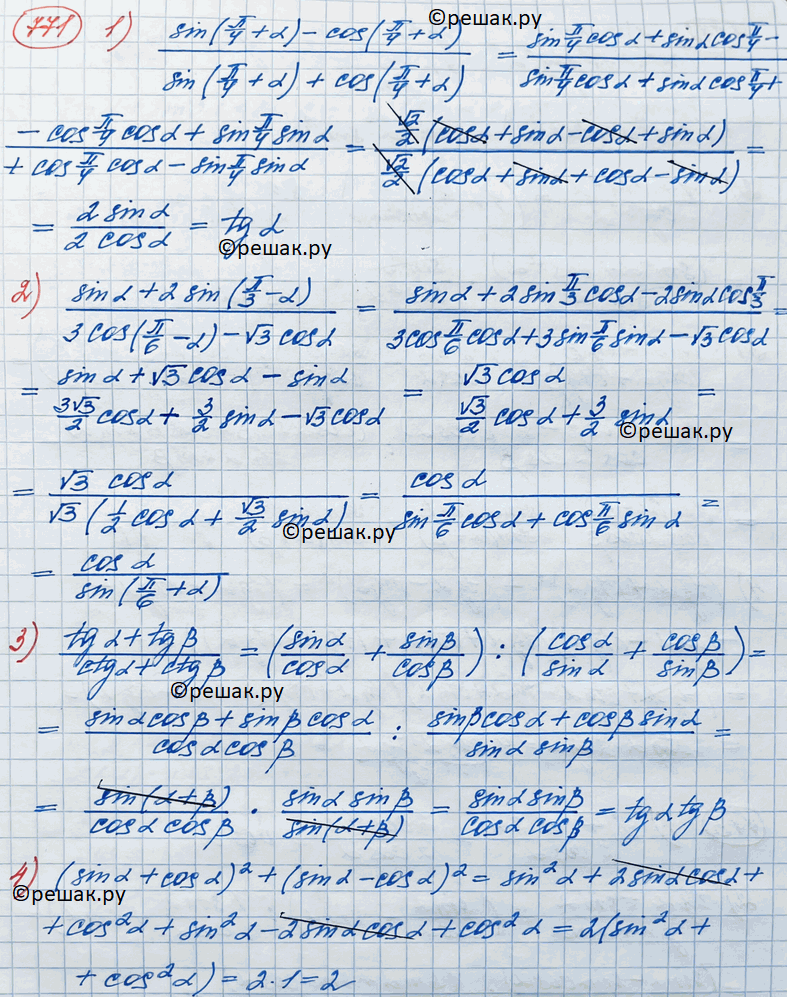 ©решак.ру
771 1) (sin(π/4 + α) − cos(π/4 + α)) / (sin(π/4 + α) + cos(π/4 + α)) = (sin π/4 cos α + sin α cos π/4 −) / (sin π/4 cos α + sin α cos π/4 +)
(− cos π/4 cos α + sin π/4 sin α) / (+ cos π/4 cos α − sin π/4 sin α) = (√2/2 (cos α + sin α − cos α + sin α)) / (√2/2 (cos α + sin α + cos α − sin α)) =
= (2 sin α) / (2 cos α) = tg α
©решак.ру
2) (sin α + 2 sin(π/3 − α)) / (3 cos(π/6 − α) − √3 cos α) = (sin α + 2 sin π/3 cos α − 2 sin α cos π/3) / (3 cos π/6 cos α + 3 sin π/6 sin α − √3 cos α) =
= (sin α + √3 cos α − sin α) / (3√3/2 cos α + 3/2 sin α − √3 cos α) = (√3 cos α) / (√3/2 cos α + 3/2 sin α) =
©решак.ру
= (√3 cos α) / (√3 (1/2 cos α + √3/2 sin α)) = (cos α) / (sin π/6 cos α + cos π/6 sin α) =
©решак.ру
= (cos α) / (sin(π/6 + α))
3) (tg α + tg β) / (ctg α + ctg β) = (sin α / cos α + sin β / cos β) : (cos α / sin α + cos β / sin β) =
©решак.ру
= (sin α cos β + sin β cos α) / (cos α cos β) : (sin β cos α + cos β sin α) / (sin α sin β) =
= sin(α + β) / (cos α cos β) · (sin α sin β) / sin(α + β) = (sin α sin β) / (cos α cos β) = tg α tg β
4) (sin α + cos α)² + (sin α − cos α)² = sin² α + 2 sin α cos α +
©решак.ру
+ cos² α + sin² α − 2 sin α cos α + cos² α = 2(sin² α +
+ cos² α) = 2 · 1 = 2
©решак.ру